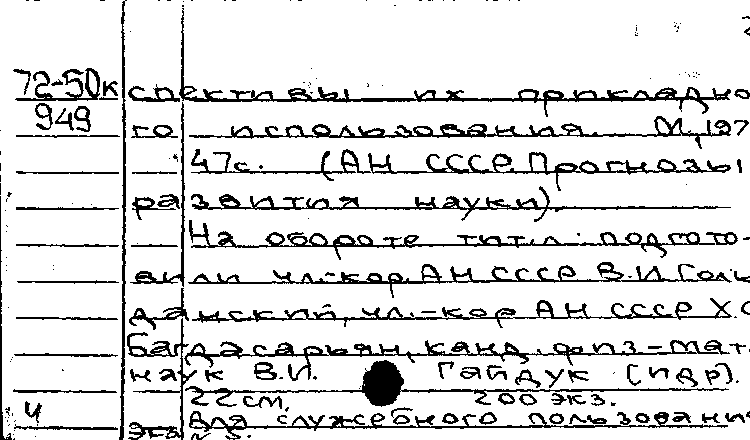 72-50к спективы их прикладно
949 го использования. М., 197
47с. (АН СССР. Прогнозы
развития науки).
На обороте тит.л.: подгото-
вили чл.-кор. АН СССР В.И. Голь
данский, чл.-кор АН СССР Х.С
Багдасарьян, канд. физ-мат.
наук В.И. Гайдук [и др].
22см. 200 экз.
ч Для служебного пользовани
экз